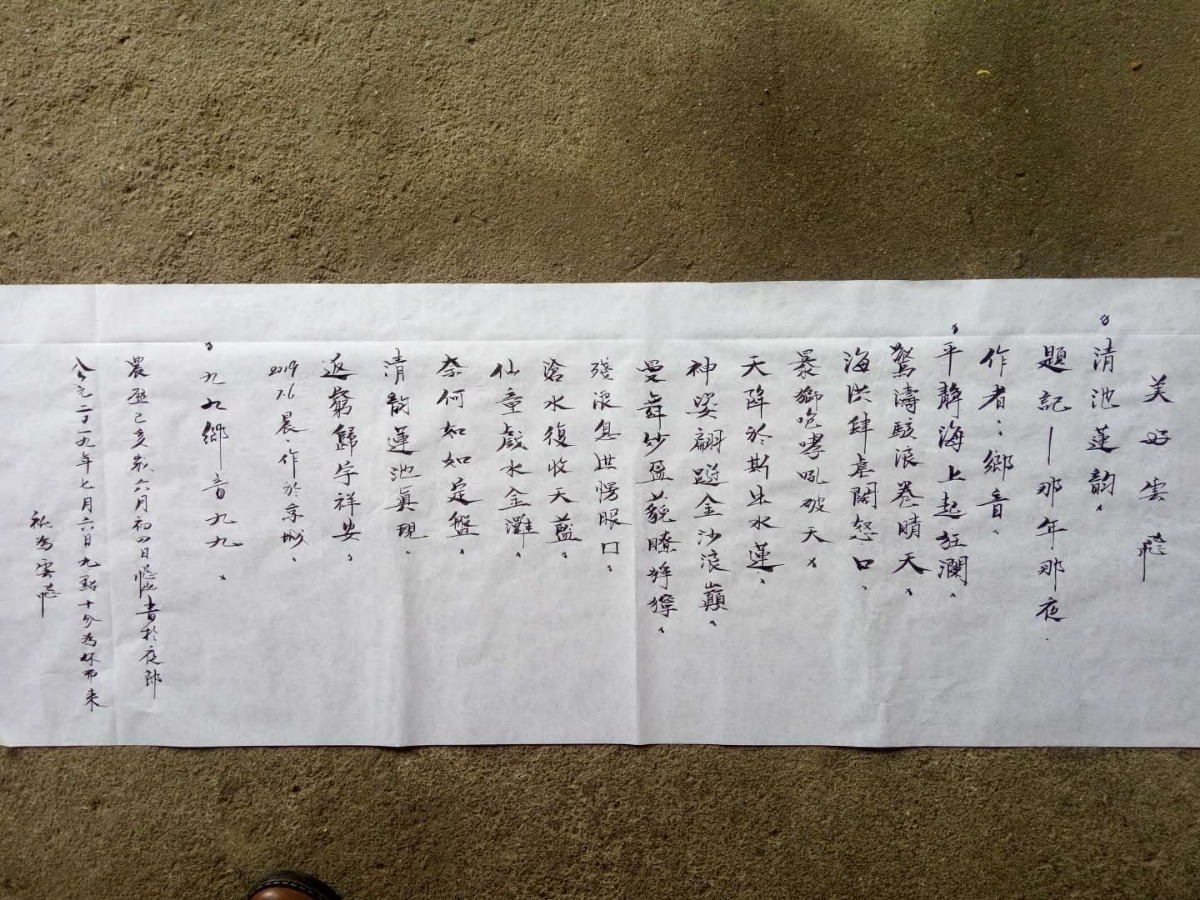 美好雲
清池蓮韵、
題記—那年那夜.
作者:鄉音、
平静海上起狂瀾、
驚濤駭浪卷晴天、
海洪肆虐闊怒口、
暴獅咆哮吼破天、
天降於斯出水蓮、
神姿翩蹬金沙浪巔、
曼舞纱盈藐瞭狰獰、
殘浪息洪愣眼口、
滄水復收天藍、
仙童戲水金灘、
奈何如如定盤、
清韵蓮池真現、
返窮歸宇祥安、
2019 7.6 晨、作於京城
九九鄉音九九、
農歷己亥歲六月初四日 書於夜郎
公元二〇一九年七月六日九點十分為妳而来
祝為雲